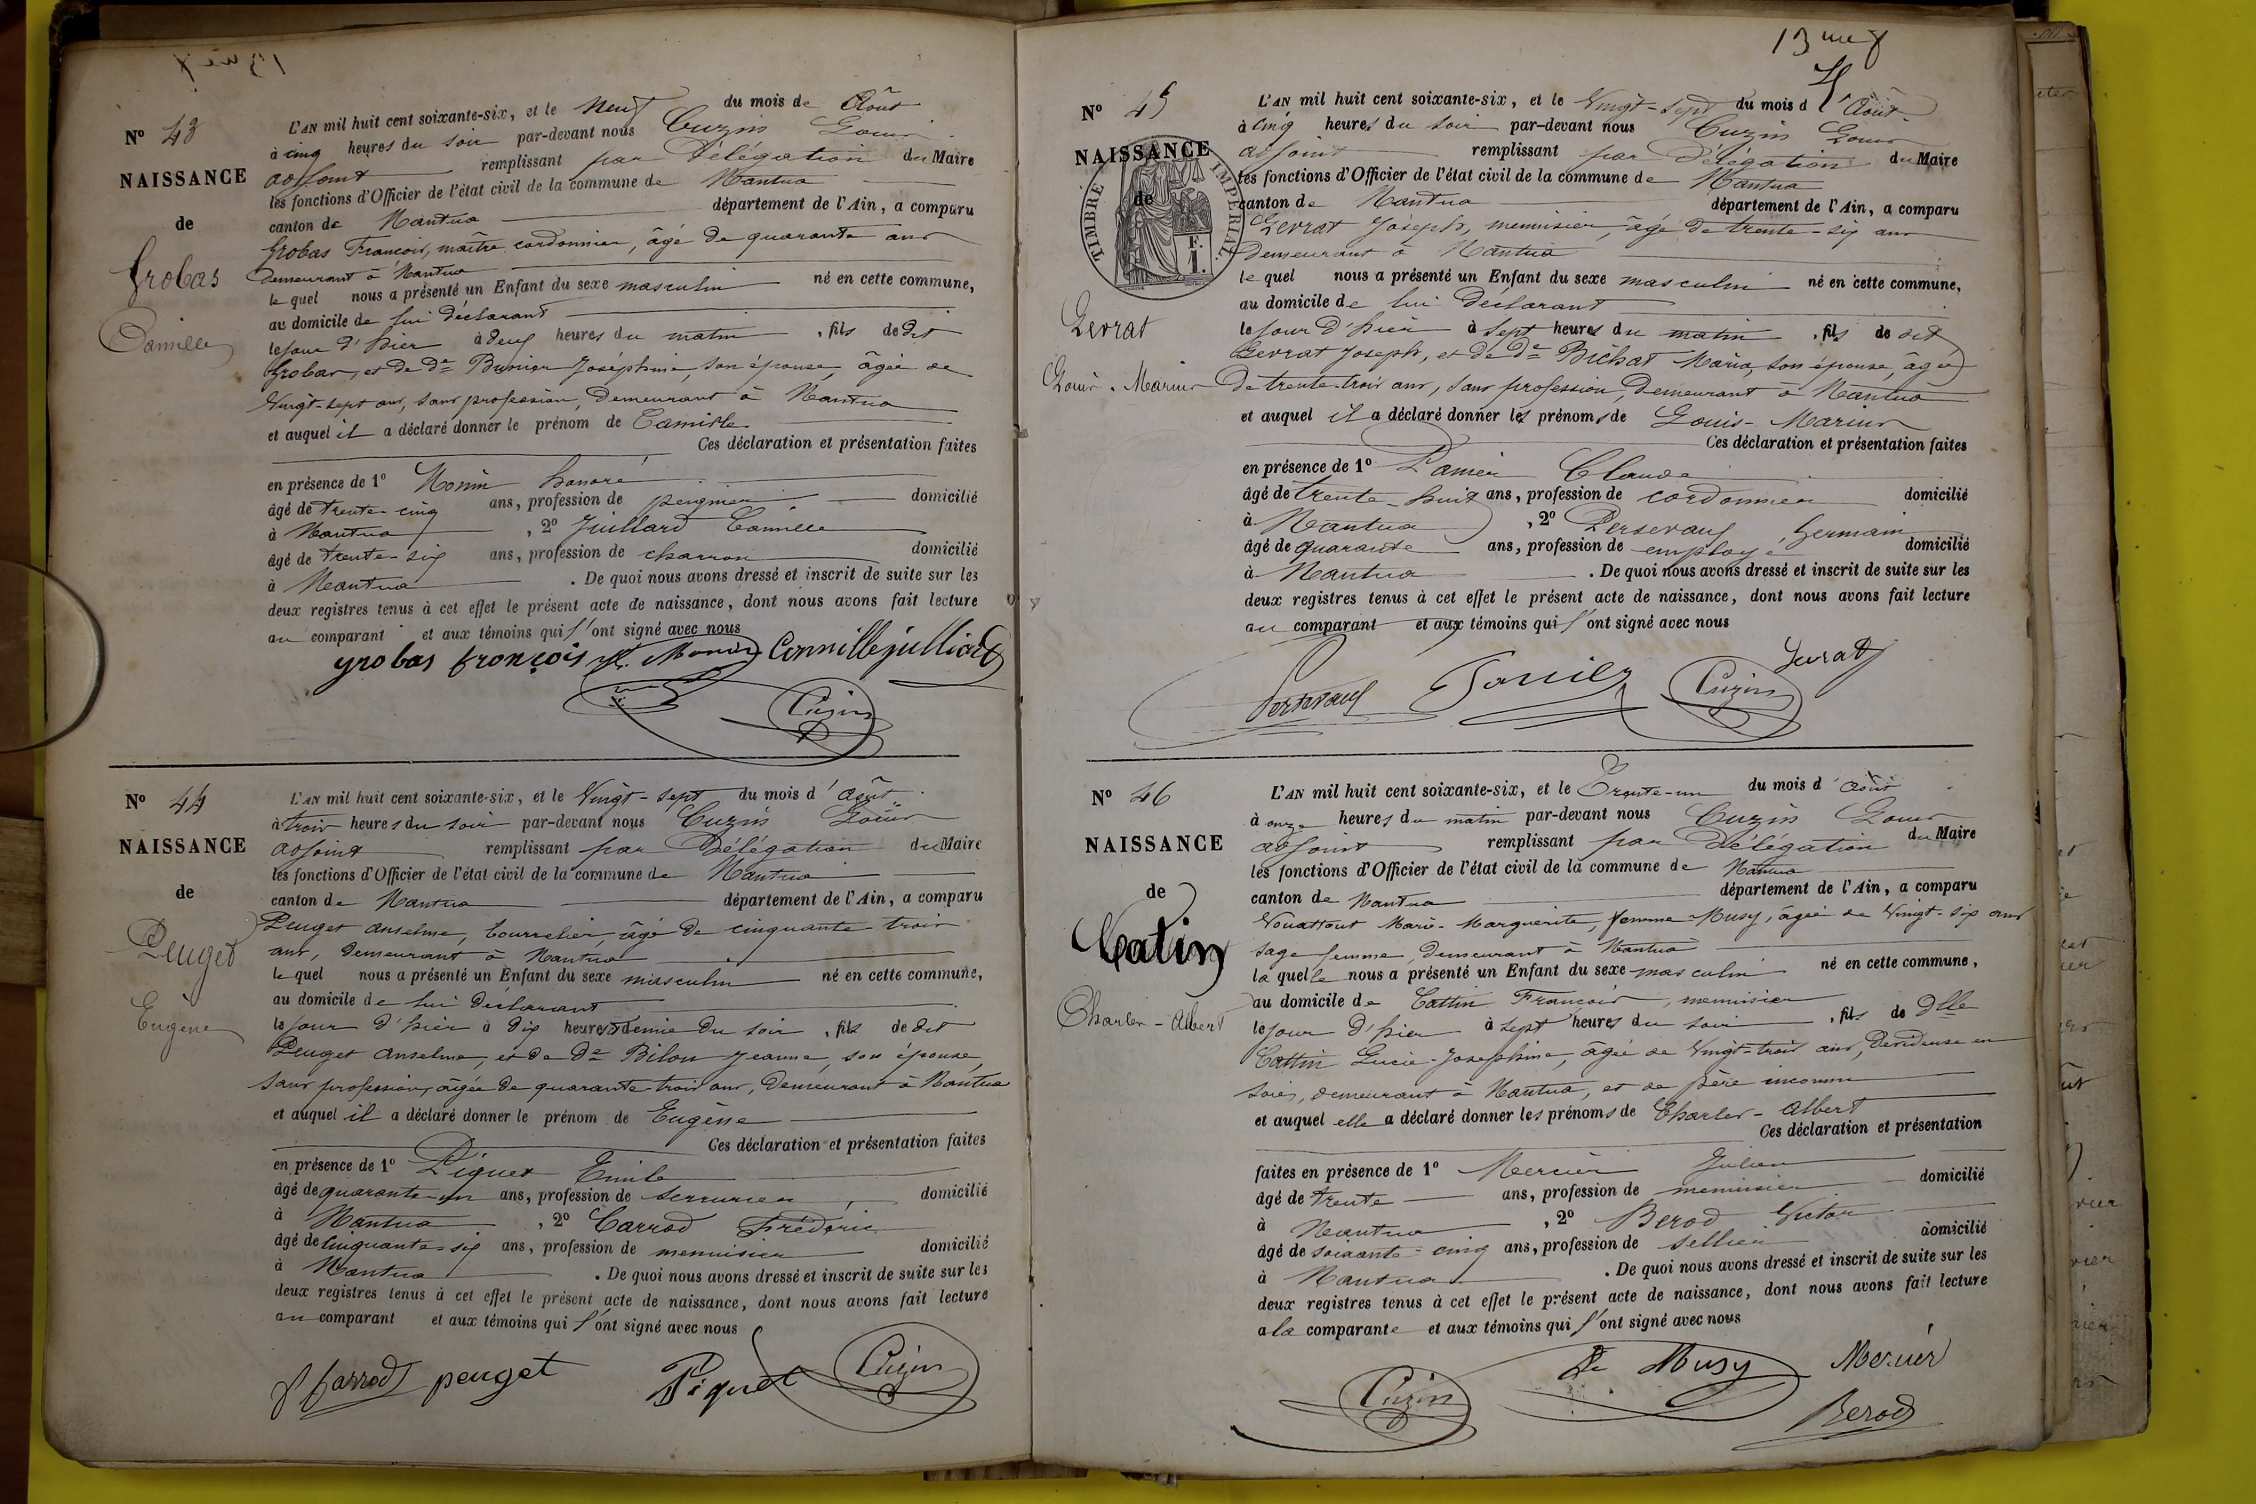 N° 43
NAISSANCE
de
Grobas
Camille
L'AN mil huit cent soixante-six, et le Neuf du mois de Août
à cinq heures du soir par-devant nous Cuzin Louis
adjoint remplissant par Délégation du Maire
les fonctions d'Officier de l'état civil de la commune de Nantua
canton de Nantua département de l'Ain, a comparu
Grobas François, maître cordonnier, âgé de quarante ans
demeurant à Nantua
le quel nous a présenté un Enfant du sexe masculin né en cette commune,
au domicile de lui déclarant
le jour d'hier à deux heures du matin, fils de dit
Grobas, et de De Josephine, son épouse, âgée de
Vingt-sept ans, sans profession, demeurant à Nantua
et auquel il a déclaré donner le prénom de Camille
Ces déclaration et présentation faites
en présence de 1° Monin honoré
âgé de trente-cinq ans, profession de peignier domicilié
à Nantua, 2° Juillard Camille
âgé de trente-six ans, profession de charron domicilié
à Nantua. De quoi nous avons dressé et inscrit de suite sur les
deux registres tenus à cet effet le présent acte de naissance, dont nous avons fait lecture
au comparant et aux témoins qui l'ont signé avec nous
grobas françois h. Monin Camille julliard
Cuzin
N° 44
NAISSANCE
de
Peuget
Eugène
L'AN mil huit cent soixante-six, et le Vingt-sept du mois d'Août
à trois heures du soir par-devant nous Cuzin Louis
adjoint remplissant par Délégation du Maire
les fonctions d'Officier de l'état civil de la commune de Nantua
canton de Nantua département de l'Ain, a comparu
Peuget anselme, bourrelier, âgé de cinquante-trois
ans, demeurant à Nantua
le quel nous a présenté un Enfant du sexe masculin né en cette commune,
au domicile de lui déclarant
le jour d'hier à dix heures & demie du soir, fils de dit
Peuget anselme, et de De Bilon Jeanne, son épouse,
sans profession, âgée de quarante-trois ans, demeurant à Nantua
et auquel il a déclaré donner le prénom de Eugène
Ces déclaration et présentation faites
en présence de 1° Piquet Emile
âgé de quarante-un ans, profession de serrurier domicilié
à Nantua, 2° Carrod Frédéric
âgé de Cinquante-six ans, profession de menuisier domicilié
à Nantua. De quoi nous avons dressé et inscrit de suite sur les
deux registres tenus à cet effet le présent acte de naissance, dont nous avons fait lecture
au comparant et aux témoins qui l'ont signé avec nous
f Carrod peuget Piquet Cuzin
N° 45
NAISSANCE
de
TIMBRE IMPERIAL
Levrat
Louis-Marius
L'AN mil huit cent soixante-six, et le Vingt-sept du mois d'Août
à cinq heures du soir par-devant nous Cuzin Louis
adjoint remplissant par Délégation du Maire
les fonctions d'Officier de l'état civil de la commune de Nantua
canton de Nantua département de l'Ain, a comparu
Levrat Joseph, menuisier, âgé de trente-six ans
demeurant à Nantua
le quel nous a présenté un Enfant du sexe masculin né en cette commune,
au domicile de lui déclarant
le jour d'hier à sept heures du matin, fils de dit
Levrat Joseph, et de De Bichat Maria, son épouse, âgée
de trente-trois ans, sans profession, demeurant à Nantua
et auquel il a déclaré donner les prénoms de Louis-Marius
Ces déclaration et présentation faites
en présence de 1° Claude
âgé de trente-huit ans, profession de cordonnier domicilié
à Nantua, 2° Germain
âgé de quarante ans, profession de employé domicilié
à Nantua. De quoi nous avons dressé et inscrit de suite sur les
deux registres tenus à cet effet le présent acte de naissance, dont nous avons fait lecture
au comparant et aux témoins qui l'ont signé avec nous
Levrat
Cuzin
N° 46
NAISSANCE
de
Catin
Charles-Albert
L'AN mil huit cent soixante-six, et le Trente-un du mois d'août
à onze heures du matin par-devant nous Cuzin Louis
adjoint remplissant par Délégation du Maire
les fonctions d'Officier de l'état civil de la commune de Nantua
canton de Nantua département de l'Ain, a comparu
Marie-Marguerite, femme Musy, âgée de Vingt-six ans
sage femme, demeurant à Nantua
la quelle nous a présenté un Enfant du sexe masculin né en cette commune,
au domicile de Cattin François, menuisier
le jour d'hier à sept heures du soir, fils de Dlle
Cattin Lucie-Josephine, âgée de Vingt-trois ans, Dévideuse en
soies, demeurant à Nantua, et de père inconnu
et auquel elle a déclaré donner les prénoms de Charles-Albert
Ces déclaration et présentation
faites en présence de 1° Mercier Julien domicilié
âgé de trente ans, profession de menuisier
à Nantua, 2° Berod Victor
âgé de soixante-cinq ans, profession de sellier domicilié
à Nantua. De quoi nous avons dressé et inscrit de suite sur les
deux registres tenus à cet effet le présent acte de naissance, dont nous avons fait lecture
a la comparante et aux témoins qui l'ont signé avec nous
Cuzin Musy Mercier
Berod